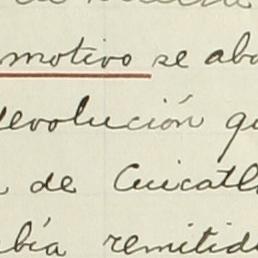 motivo se abo
devolución qu
de Cuicatl
bía remitid